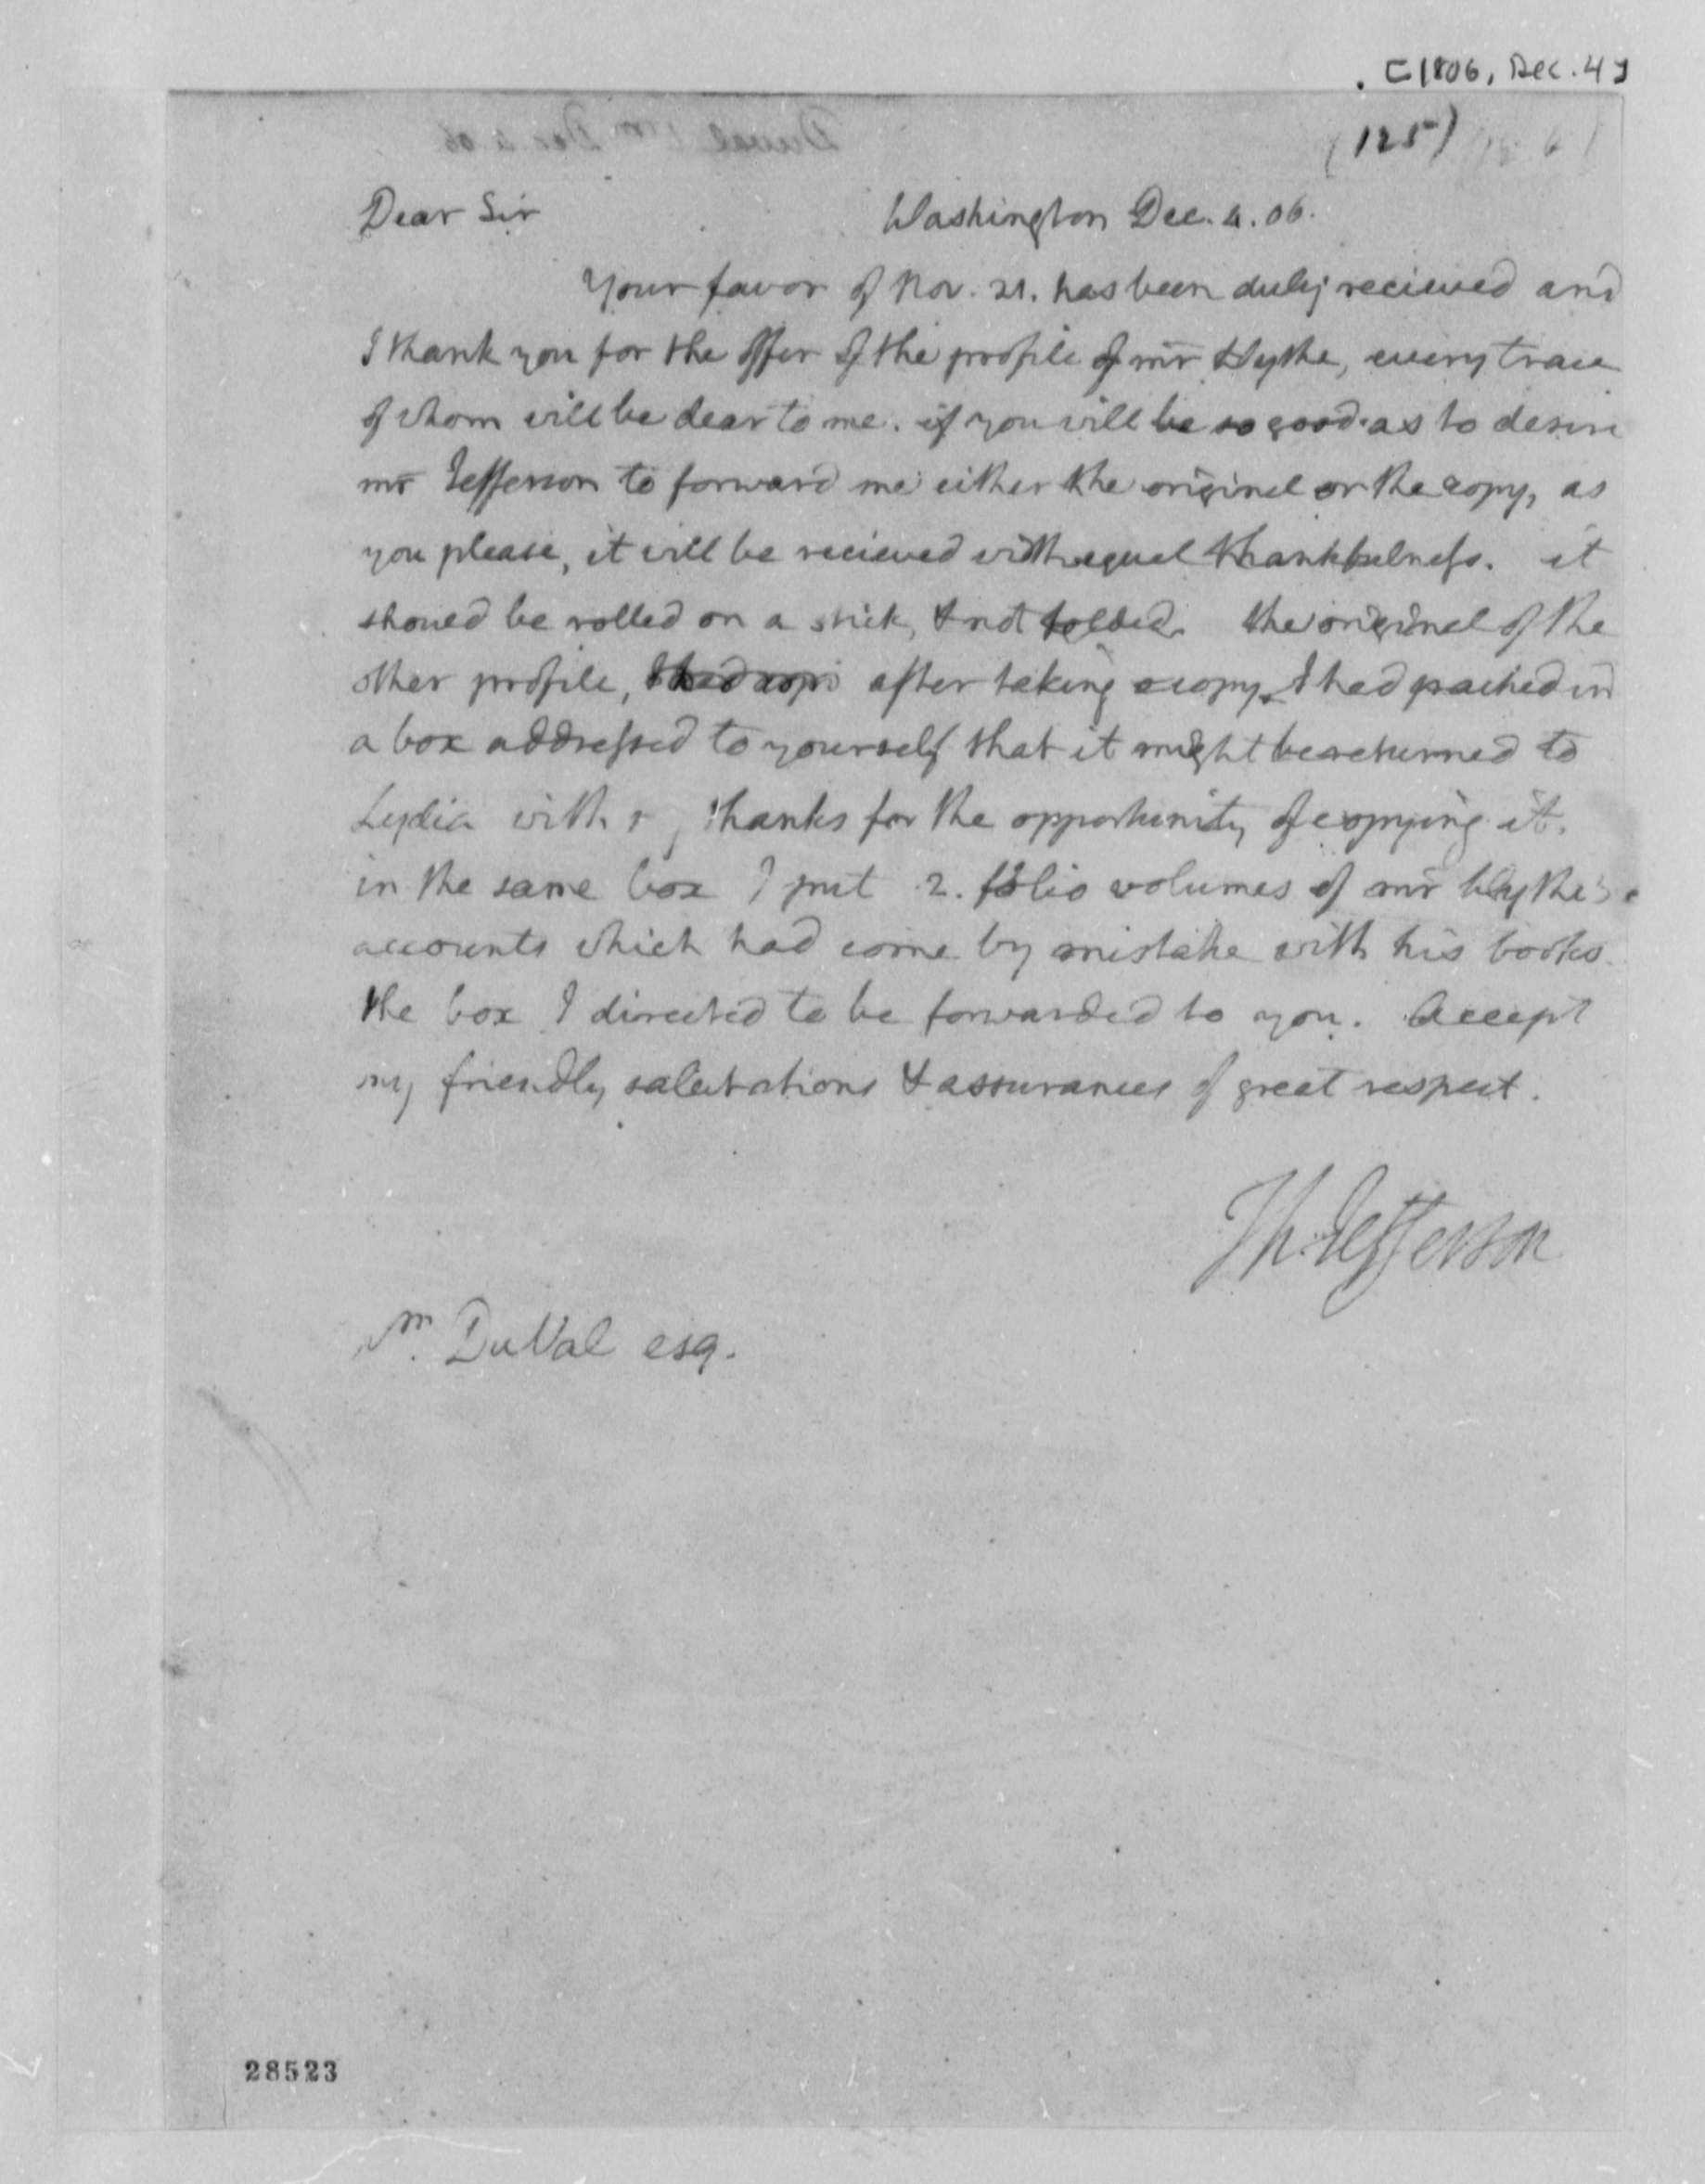 [1806, Dec. 4]
(125)
Dear Sir Washington Dec. 4. 06.
Your favor of Nov. 21. has been duly recieved and
I thank you for the offer of the profile of mr Wythe, every trace
of whom will be dear to me. if you will be so good as to desire
mr Jefferson to forward me either the original or the copy, as
you please, it will be recieved with equal thankfulness. it
should be rolled on a stick, & not folded. the original of the
other profile, after taking a copy, I had packed in
a box addressed to yourself that it might be returned to
Lydia with my thanks for the opportunity of copying it.
in the same box I put 2. folio volumes of mr Wythe's
accounts which had come by mistake with his books.
the box I directed to be forwarded to you. Accept
my friendly salutations & assurances of great respect.
Th: Jefferson
Wm. DuVal esq.
28523